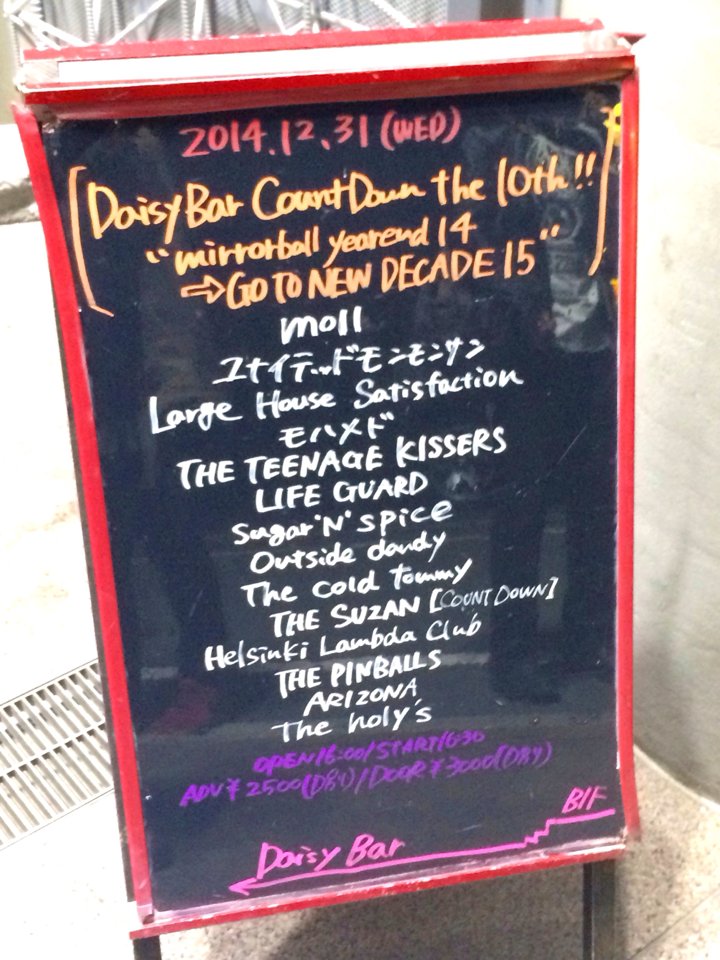 2014.12.31(WED)
DaisyBar CountDown the 10th!!
"mirrorball yearend 14
⇨GO TO NEW DECADE 15"
moll
ユナイテッドモンモンサン
Large House Satisfaction
モハメド
THE TEENAGE KISSERS
LIFE GUARD
Sugar'N'spice
Outside dandy
The cold tommy
THE SUZAN [COUNT DOWN]
Helsinki Lambda Club
THE PINBALLS
ARIZONA
The holy's
OPEN/16:00/START/16:30
ADV¥2500(DRY)/DOOR¥3000(DRY)
B1F
Daisy Bar